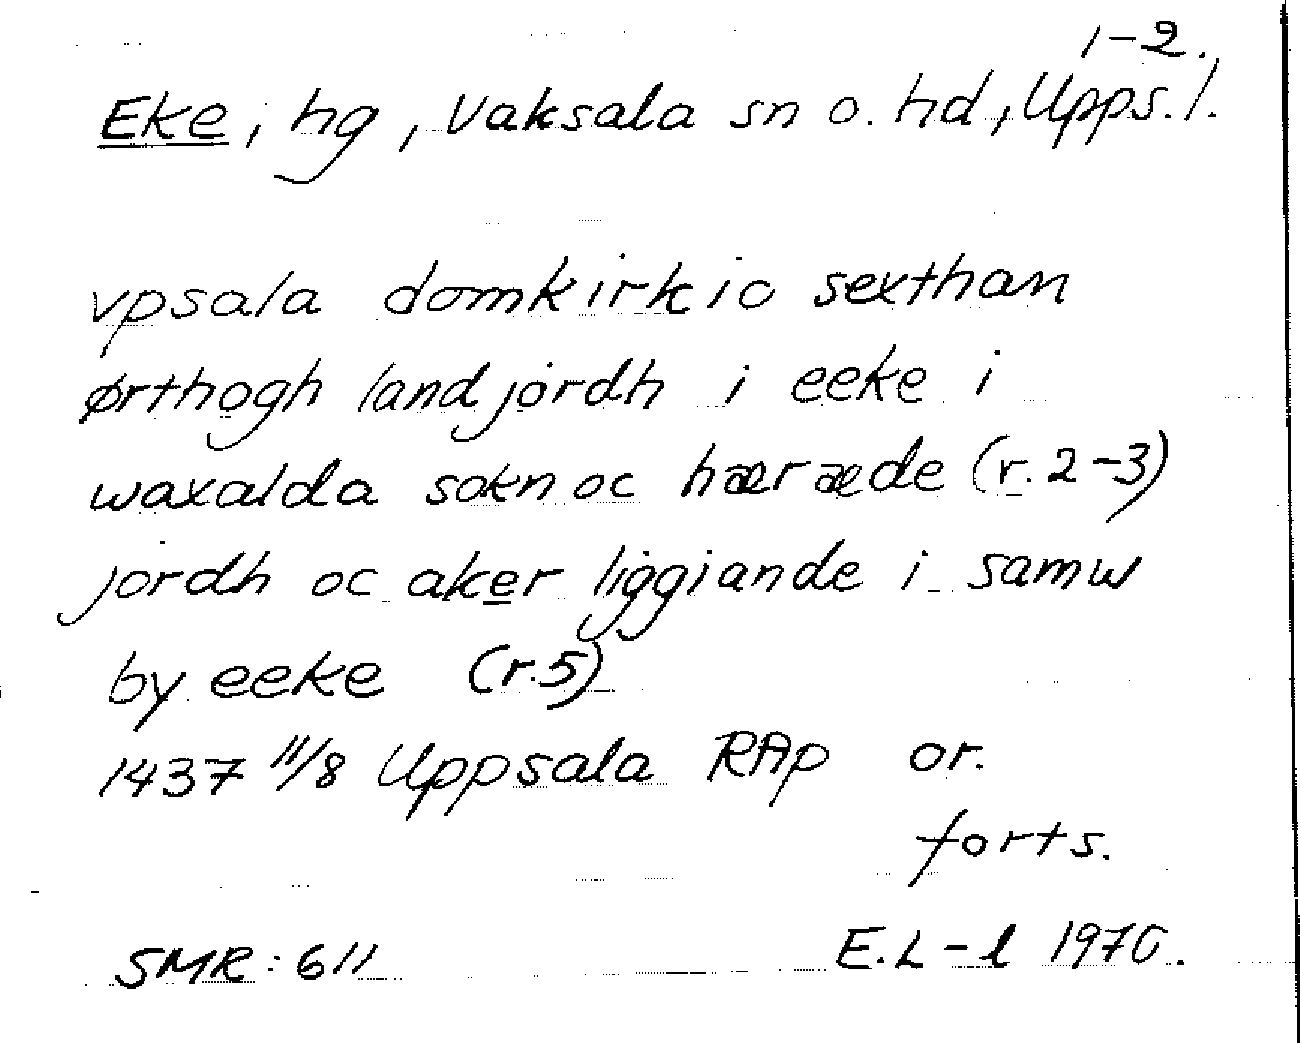 1-2.
Eke, hg, Vaksala sn o. hd, Upps. l.
vpsala domkirkio sexthan
ørthogh landjordh i eeke i
waxalda sokn oc hæræde (r. 2-3)
jordh oc aker liggiande i samw
by eeke (r. 5)
1437 11/8 Uppsala RAp or.
forts.
SMR: 611 E. L-l 1970.